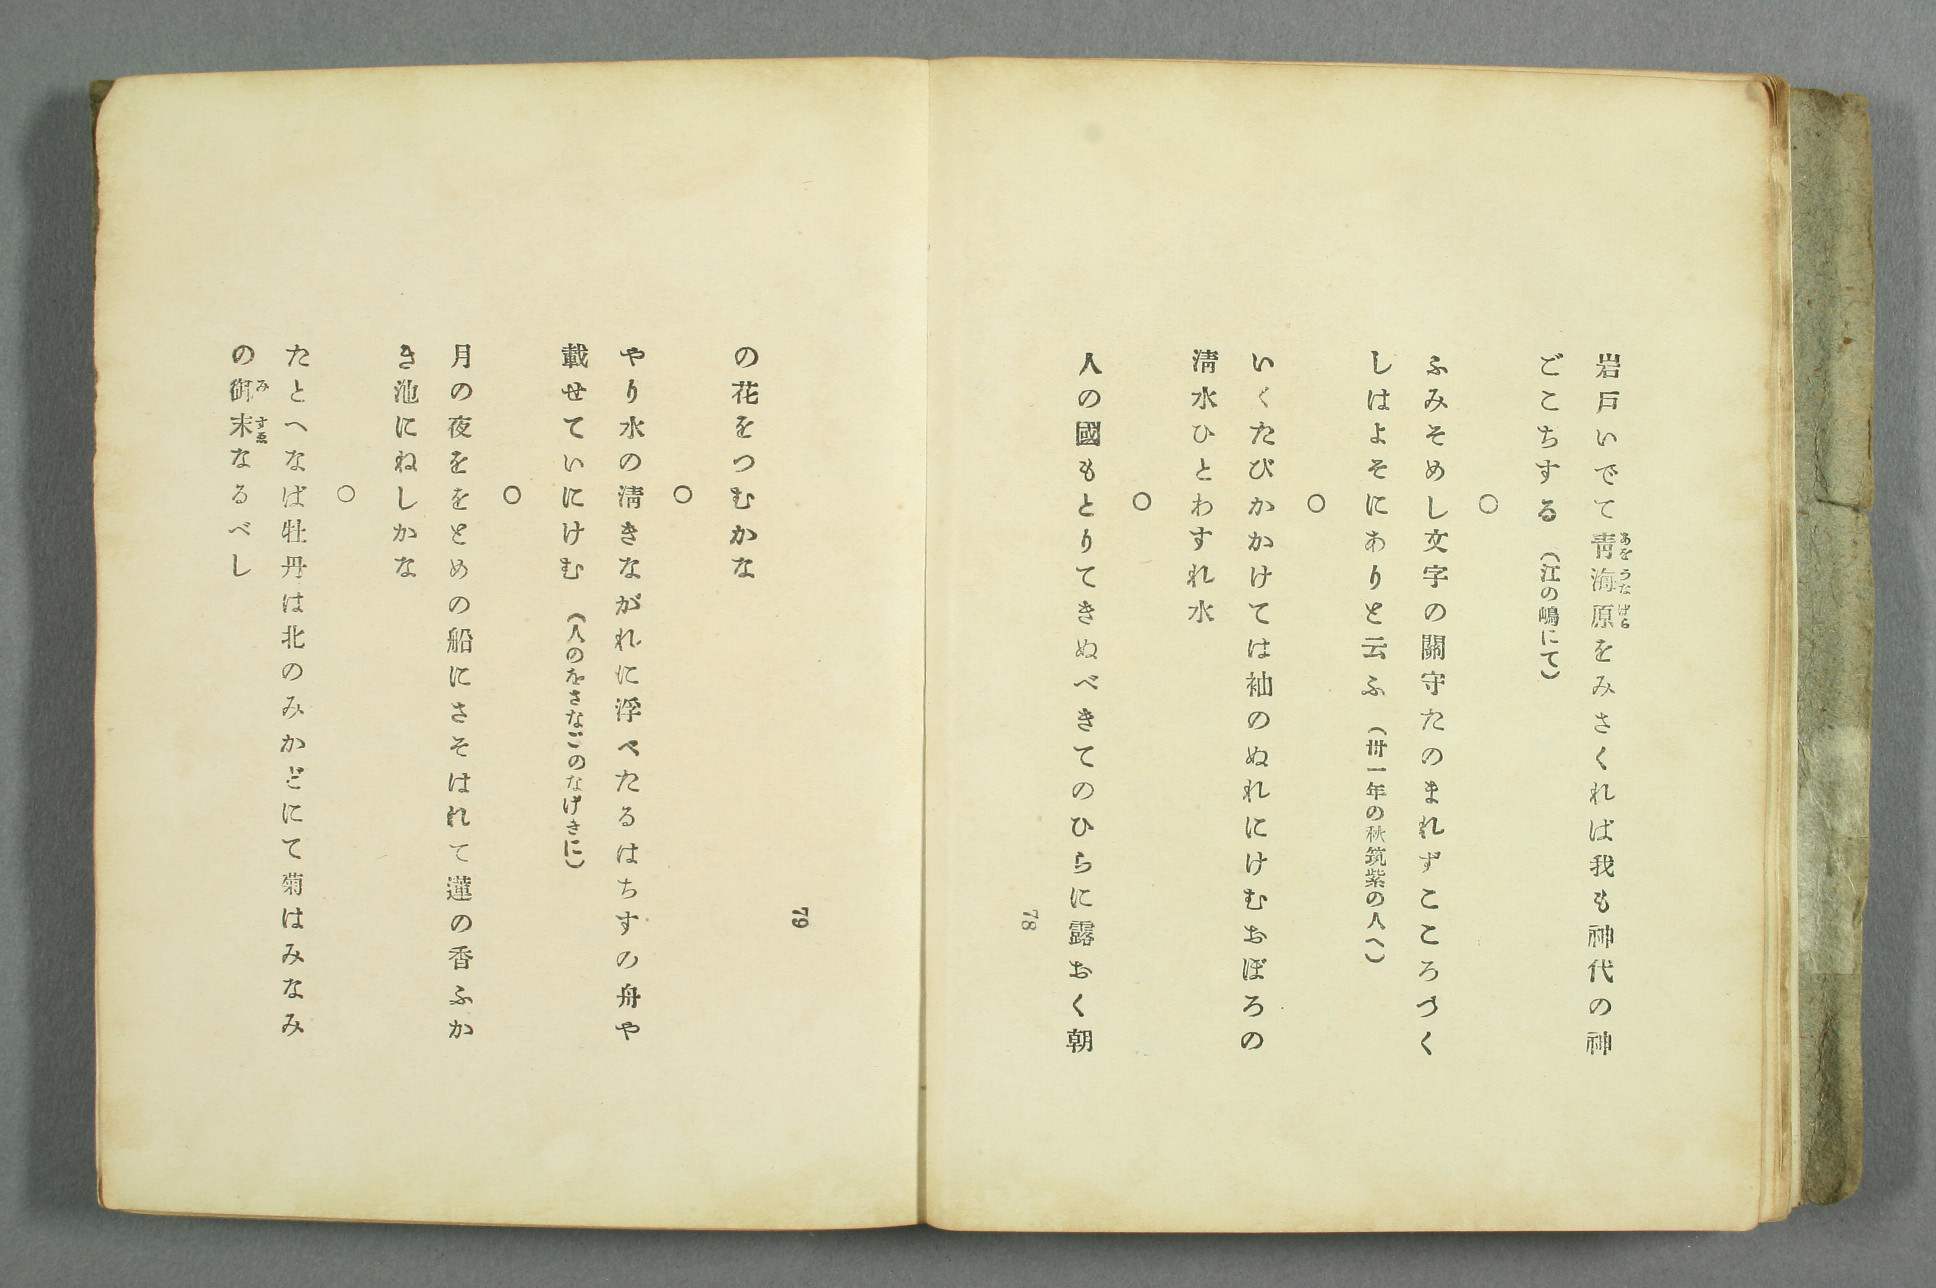 岩戸いでて靑海原をみさくれば我も神代の神
あをうなばら
ごこちする (江の嶋にて)
○
ふみそめし文字の關守たのまれずこころづく
しはよそにありと云ふ (卅一年の秋筑紫の人へ)
○
いくたびかかけては袖のぬれにけむおぼろの
淸水ひとわすれ水
○
人の國もとりてきぬべきてのひらに露おく朝
78
79
の花をつむかな
○
やり水の淸きながれに浮べたるはちすの舟や
載せていにけむ (人のをさなごのなげきに)
○
月の夜ををとめの船にさそはれて蓮の香ふか
き池にねしかな
○
たとへなば牡丹は北のみかどにて菊はみなみ
の御末なるべし
みすゑ